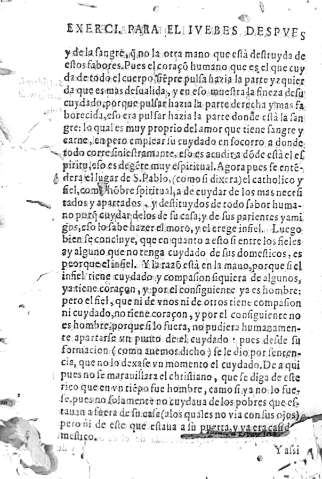 EXERCI. PARA EL IVEBES DESPVES
y de la sangre, q̃ no la otra mano que està destruyda de
estos fabores. Pues el coraçõ humano que es el que cuy
da de todo el cuerpo siẽpre pulsa hazia la parte yzquier
da que es mas desualida, y en eso muestra la fineza de su
cuydado, porque pulsar hazia la parte derecha y mas fa
borecida, eso era pulsar hazia la parte donde està la san
gre: lo qual es muy proprio del amor que tiene sangre y
carne, pero emplear su cuydado en socorro a donde
todo corre siniestramente, eso es acudir a dõde està el es
piritu, eso es de gẽte muy espiritual. Agora pues se entẽ
dera el lugar de S. Pablo, (como si dixera) el catholico y
fiel, como hõbre spiritual, a de cuydar de los mas necesi
tados y apartados, y destituydos de todo fabor huma-
no porq̃ cuydar de los de su casa, y de sus parientes y ami
gos, eso lo sabe hazer el moro, y el erege infiel. Luego
bien se concluye, que en quanto a esto si entre los fieles
ay alguno que no tenga cuydado de sus domesticos, es
peor que el infiel. Y la razõ està en la mano, porque si el
infiel tiene cuydado y compasion siquiera de algunos,
ya tiene coraçon, y por el consiguiente ya es hombre:
pero el fiel, que ni de vnos ni de otros tiene compasion
ni cuydado, no tiene coraçon, y por el consiguiente no
es hombre, porque si lo fuera, no pudiera humanamen-
te apartarse vn punto de el cuydado: pues desde su
formacion (como auemos dicho) se le dio por senten-
cia, que no lo dexase vn momento el cuydado. De a qui
pues no se marauillara el christiano, que se diga de este
rico que en vn tiẽpo fue hombre, como si ya no lo fue-
se, pues no solamente no cuydaua de los pobres que es-
tauan a fuera de su casa (a los quales no via con sus ojos)
pero ni de este que estaua a su puerta, y ya era casi do
mestico.
Y asi